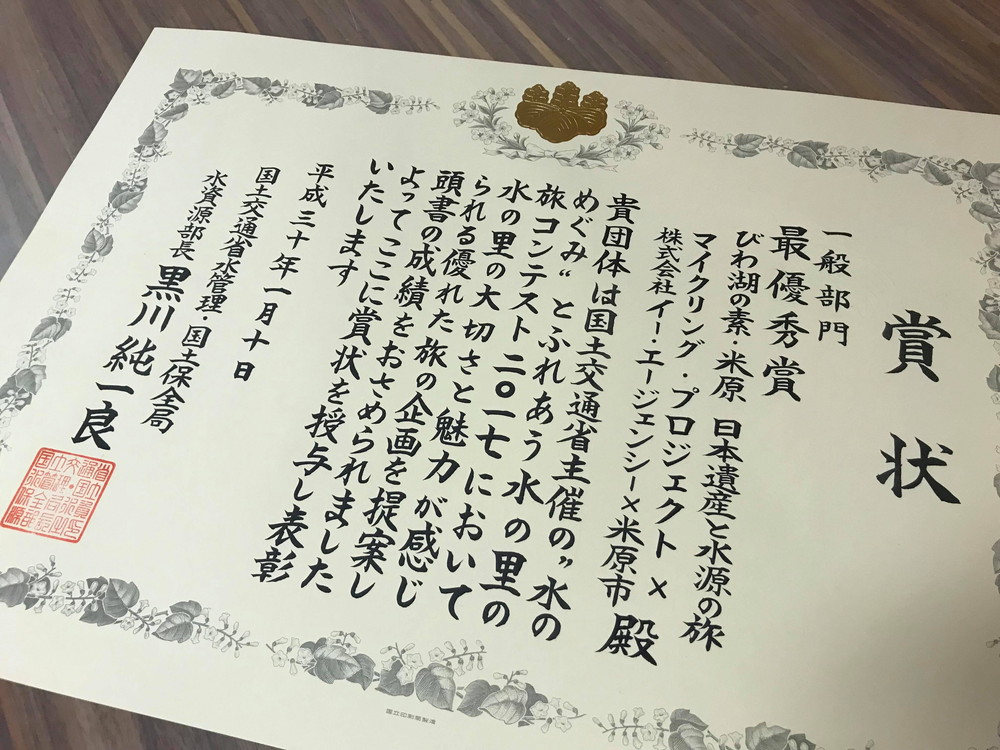 賞状
一般部門
最優秀賞
びわ湖の素・米原 日本遺産と水源の旅
マイクリング・プロジェクト×
株式会社イー・エージェンシー×米原市 殿
貴団体は国土交通省主催の〃水の
めぐみ〃とふれあう水の里の
旅コンテスト二〇一七において
水の里の大切さと魅力が感じ
られる優れた旅の企画を提案し
頭書の成績をおさめられました
よってここに賞状を授与し表彰
いたします
平成三十年一月十日
国土交通省水管理・国土保全局
水資源部長 黒川純一良
国立印刷局製造